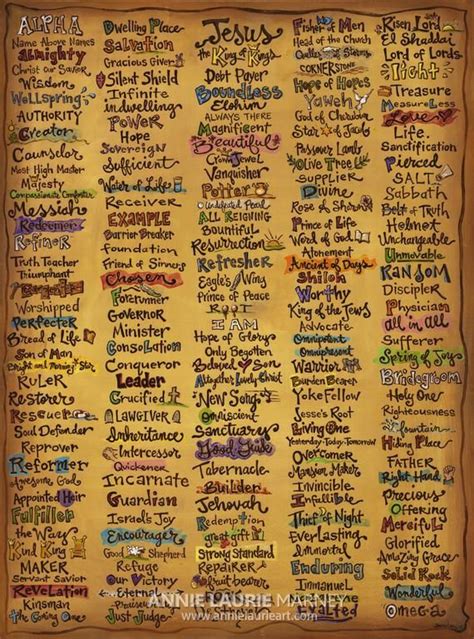 ALPHA
Name Above Names
ALMIGHTY
Christ our Savior
Wisdom
Wellspring
AUTHORITY
Creator
Counselor
Most High Master
Majesty
Compassionate Comforter
Messiah
Redeemer
Refiner
Truth Teacher
Triumphant
Worshipped
Perfecter
Bread of Life
Son of Man
Bright and Morning Star
RuleR
Restorer
Rescuer
Soul Defender
Reprover
Reformer
Awesome God
Appointed Heir
Fulfiller
the Way
Kind King
MAKER
Servant Savior
Revelation
Kinsman
the Going One
Dwelling Place
Salvation
Gracious Giver
Silent Shield
Infinite
indwelling
Power
Hope
Sovereign
Sufficient
Water of Life
Receiver
EXAMPLE
Barrier Breaker
foundation
Friend of Sinners
Chosen
Forerunner
Governor
Minister
Consolation
Conqueror
Leader
Crucified
LAWGIVER
Inheritance
Intercessor
Quickener
Incarnate
Guardian
Israel's Joy
Encourager
Good Shepherd
Refuge
Our Victory
Eternal
Just Judge
Jesus
the King of Kings
Debt Payer
Boundless
Elohim
ALWAYS THERE
Magnificent
Beautiful
Crown Jewel
Vanquisher
Potter
Undefeated Pearl
All Reigning
Bountiful
Resurrection
Refresher
Eagle's Wing
Prince of Peace
ROOT
I AM
Hope of Glory
Only Begotten
Beloved Son
Altogether Lovely Christ
New Song
Omniscient
Sanctuary
Good Guide
Tabernacle
Builder
Jehovah
Redemption
great gift
Strong Standard
Repairer
Fisher of Men
Head of the Church
CORNERSTONE
Hope of Hopes
Yaweh
God of Chances
Star of Jacob
Passover Lamb
Olive Tree
Supplier
Divine
Rose of Sharon
Prince of Life
Word of God
Atonement
Ancient of Days
Shiloh
Worthy
King of the Jews
Advocate
Omnipotent
Omnipresent
Warrior
Burden Bearer
Yoke Fellow
Jesse's Root
Living One
Yesterday-Today-Tomorrow
Overcomer
Mansion Maker
Invincible
Infallible
Thief of Night
Everlasting
Immortal
Enduring
Immanuel
Exalted
Risen Lord
El Shaddai
Lord of Lords
Light
Treasure
Measureless
Love
Life
Sanctification
Pierced
SALT
Sabbath
Belt of Truth
Holnest
Unchangeable
Unmovable
Ransom
Discipler
Physician
all in all
Sufferer
Spring of Joys
Bridegroom
Holy One
Righteousness
Fountain
Hiding Place
FATHER
Right Hand
Precious
Offering
Merciful
Glorified
Amazing Grace
Solid Rock
Wonderful
Omega
ANNIE LAURIE MARNEY
www.annielaurieart.com